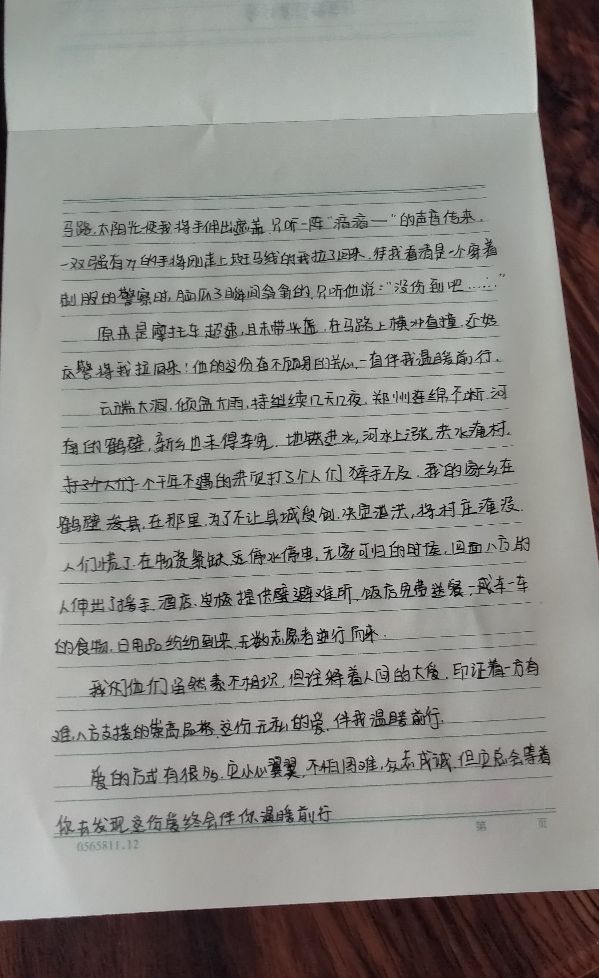 马路,太阳光使我将手伸出遮盖,只听一阵“滴滴一”的声音传来,
一双强有力的手将刚走上斑马线的我拉了回来,待我看清是一个穿着
制服的警察时,脑瓜子瞬间嗡嗡的,只听他说:“没伤到吧……”
原来是摩托车超速,且未带头盔,在马路上横冲直撞,还好
交警将我拉回来!他的这份奋不顾身的关心一直伴我温暖前行。
云端大洞,倾盆大雨,持继续几天几夜,郑州连绵不断,河
南的鹤壁,新乡也未得幸免,地铁进水,河水上涨,洪水淹村,
个千年不遇的洪灾打了个人们猝手不及,我的家乡在
鹤壁浚县,在那里,为了不让县城受创,决定泄洪,将村庄淹没,
人们慌了,在物资紧缺,停水停电,无家可归的时候,四面八方的
人伸出了援手,酒店,学校提供躲避难所,饭店免费送餐,一成车一车
的食物,日用品纷纷到来,无数志愿者逆行而来.
我们他们虽然素不相识,但诠释着人间的大爱,印证着一方有
难,八方支援的崇高品格,这份无私的爱,伴我温暖前行.
爱的方式有很多,小心翼翼,不怕困难,众志成诚,但总会等着
你去发现,这份爱终会伴你温暖前行
0565811.12
第 页